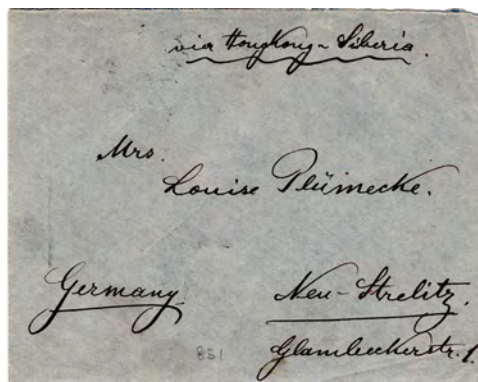 via HongKong - Siberia.
Mrs.
Louise Plümecke.
Germany
Neu-Strelitz.
Glambeckerstr. 1.
851